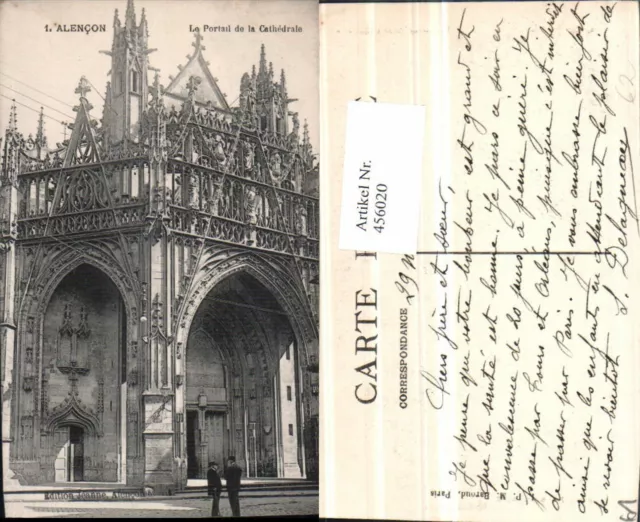 1. ALENÇON
Le Portail de la Cathédrale
Edition Jeanne,
Artikel Nr.
456020
CARTE
CORRESPONDANCE
29
Chers frère et sœur,
Je pense que votre bonheur est grand et
que la santé est bonne. Je pars ce soir en
convalescence de 20 jours à peine guéri. Je
passe par Tours et Orléans, puisque c'est interdit
de passer par Paris. Je vous embrasse bien fort
ainsi que les enfants en attendant le plaisir de
se revoir bientôt
P. M. Baroud, Paris